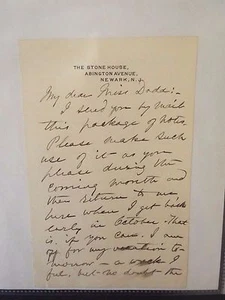 THE STONE HOUSE,
ABINGTON AVENUE,
NEWARK, N.J.
My dear Miss Dodd:-
I send you by mail
this package of notes.
Please make such
use of it as you
please during the
coming month and
then return to me
here when I get back
early in October - that
is, if you can. I am
off for my vacation to-
morrow - a week I
ful, but no doubt the